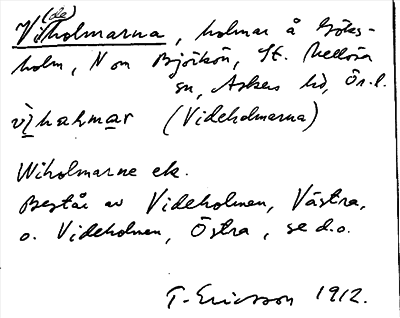 Vi(de)holmarna, holmar å Göks-
holm, N om Björkön, St. Mellösa
sn, Askers hd, Ör. l.
vìhǝlmar (Videholmarna)
Wiholmarne ek.
Består av Videholmen, Västra,
o. Videholmen, Östra, se d.o.
T. Ericsson 1912.